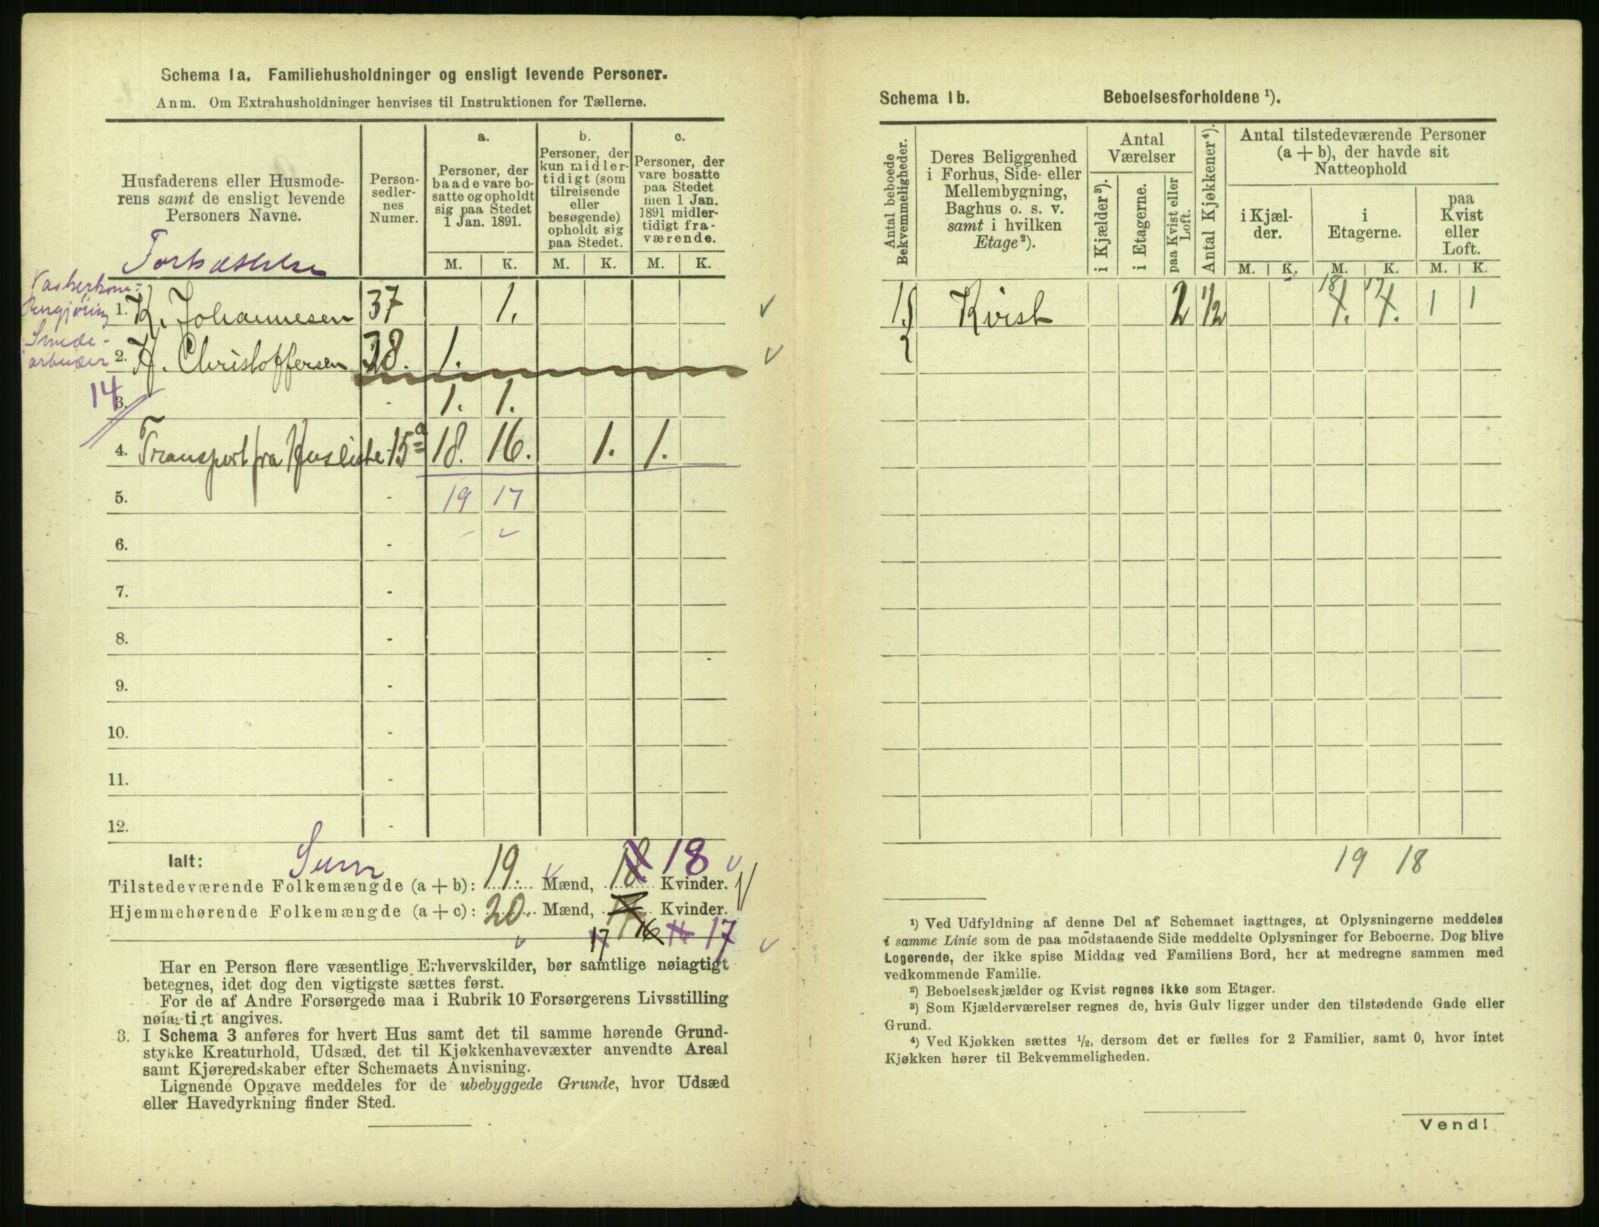 Schema 1a. Familiehusholdninger og ensligt levende Personer.
Anm. Om Extrahusholdninger henvises til Instruktionen for Tællerne.
Husfaderens eller Husmode-
rens samt de ensligt levende
Personers Navne.
Person-
sedler-
nes
Numer.
a.
Personer, der
baade vare bo-
satte og opholdt
sig paa Stedet
1 Jan. 1891.
b.
Personer, der
kun midler-
tidigt (som
tilreisende
eller
besøgende)
opholdt sig
paa Stedet.
c.
Personer, der
vare bosatte
paa Stedet
men 1 Jan.
1891 midler-
tidigt fra-
værende.
M. K. M. K. M. K.
Vaskerkone
Rengjøring
1. K. Johannesen 37 1.
Smede-
arbeider
2. H. Christoffersen 38. 1.
14
3. - 1. 1.
4. Transport fra Husliste 15a 18. 16. 1. 1.
5. - 19 17
6. -
7. -
8. -
9. -
10. -
11. -
12. -
Ialt: Sum
Tilstedeværende Folkemængde (a + b): 19. Mænd, 18. 18 Kvinder.
Hjemmehørende Folkemængde (a + c): 20 Mænd, Kvinder.
17 16 17
Har en Person flere væsentlige Erhvervskilder, bør samtlige nøiagtigt
betegnes, idet dog den vigtigste sættes først.
For de af Andre Forsørgede maa i Rubrik 10 Forsørgerens Livsstilling
nøiagtigt angives.
3. I Schema 3 anføres for hvert Hus samt det til samme hørende Grund-
stykke Kreaturhold, Udsæd, det til Kjøkkenhavevæxter anvendte Areal
samt Kjøreredskaber efter Schemaets Anvisning.
Lignende Opgave meddeles for de ubebyggede Grunde, hvor Udsæd
eller Havedyrkning finder Sted.
Schema 1b. Beboelsesforholdene ¹).
Antal beboede
Bekvemmeligheder.
Deres Beliggenhed
i Forhus, Side- eller
Mellembygning,
Baghus o. s. v.
samt i hvilken
Etage²).
Antal
Værelser
i Kjælder³).
i Etagerne.
paa Kvist eller
Loft.
Antal Kjøkkener⁴).
Antal tilstedeværende Personer
(a + b), der havde sit
Natteophold
i Kjæl-
der.
i
Etagerne.
paa
Kvist
eller
Loft.
M. K. M. K. M. K.
18 17
1 Kvist 2 1/2 1. 1. 1 1
19 18
¹) Ved Udfyldning af denne Del af Schemaet iagttages, at Oplysningerne meddeles
i samme Linie som de paa modstaaende Side meddelte Oplysninger for Beboerne. Dog blive
Logerende, der ikke spise Middag ved Familiens Bord, her at medregne sammen med
vedkommende Familie.
²) Beboelseskjælder og Kvist regnes ikke som Etager.
³) Som Kjælderværelser regnes de, hvis Gulv ligger under den tilstødende Gade eller
Grund.
⁴) Ved Kjøkken sættes ½, dersom det er fælles for 2 Familier, samt 0, hvor intet
Kjøkken hører til Bekvemmeligheden.
Vend!